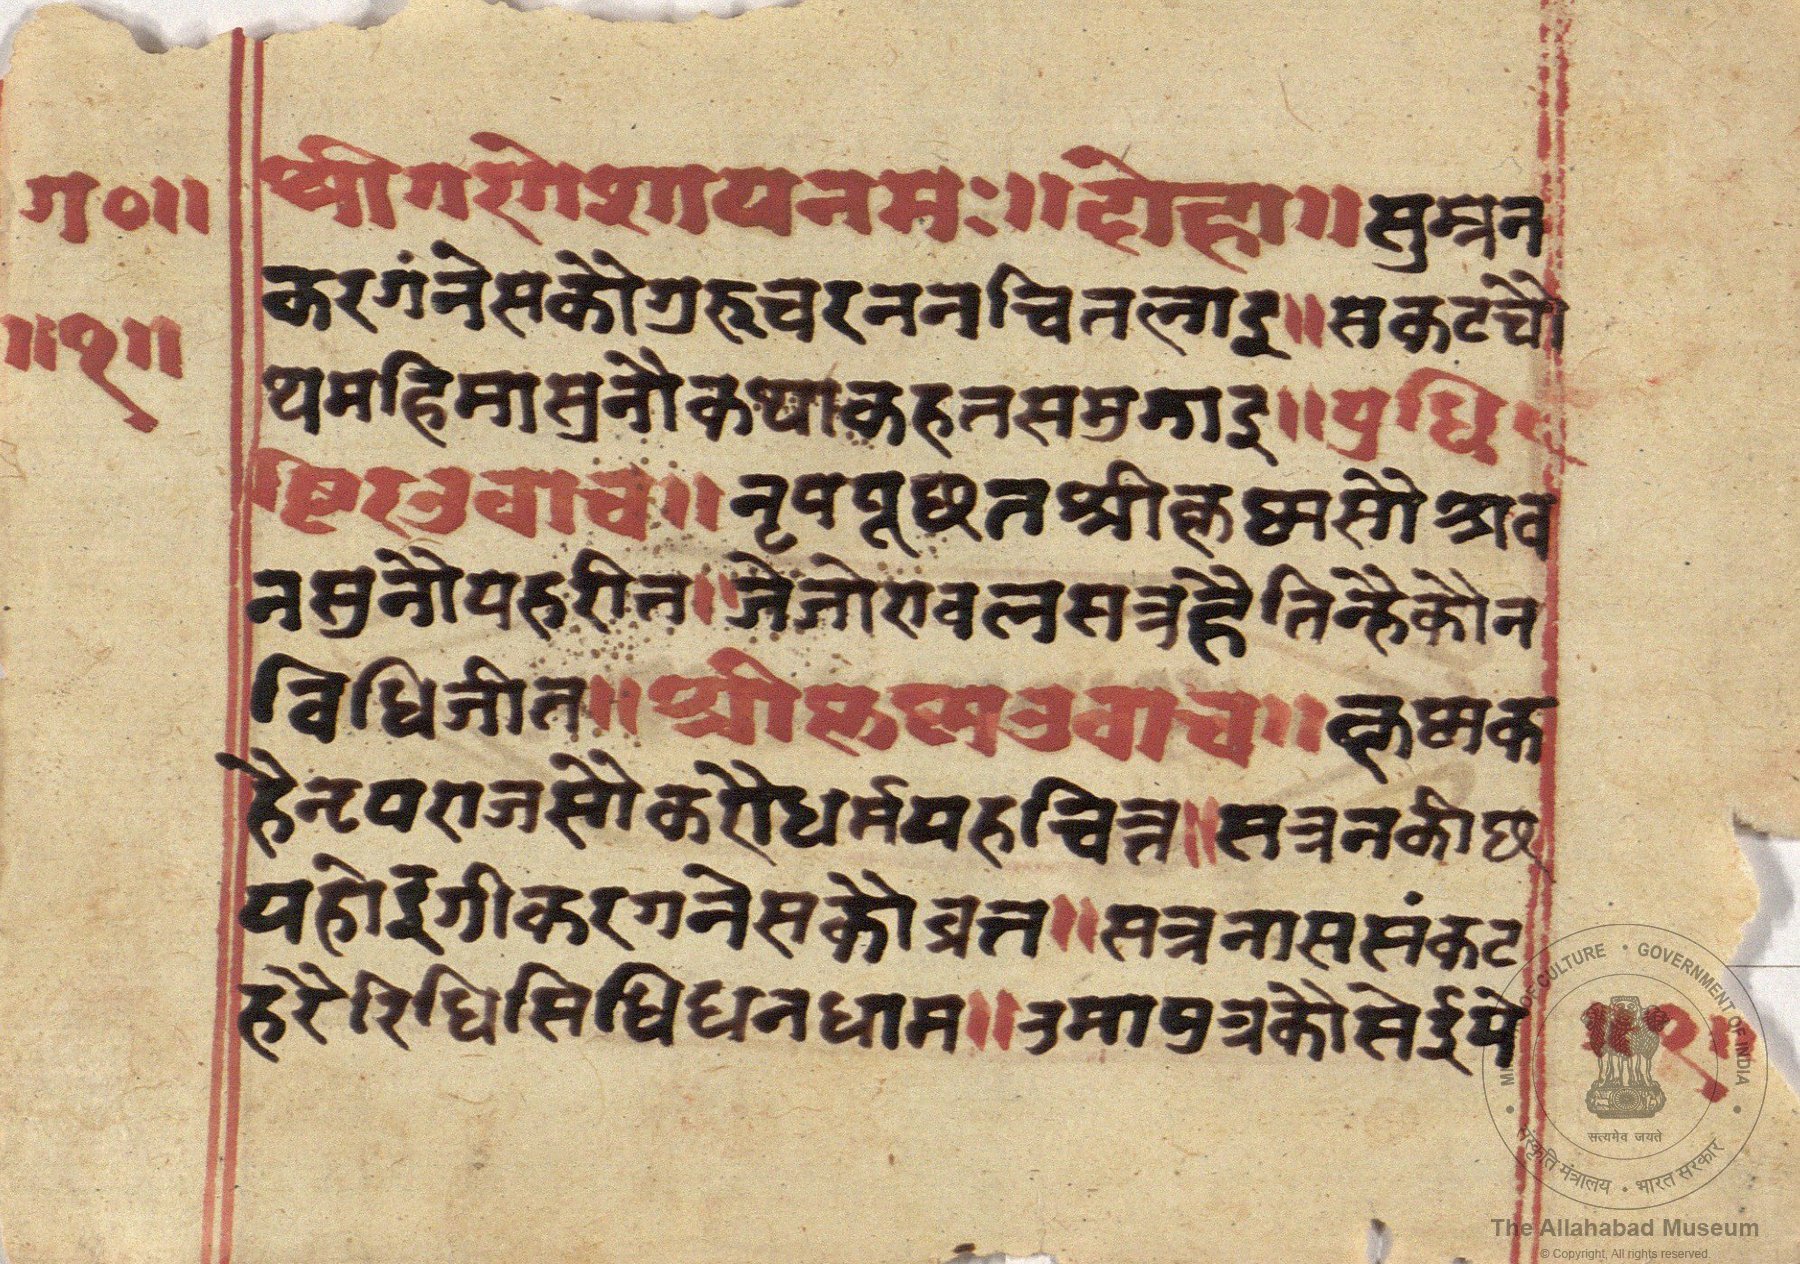 ग०॥
॥१॥
श्रीगणेशायनमः॥दोहा॥सुम्रन
करगंनेसकौगुरुचरननचितलाइ॥सकटचौ
थमहिमासुनौकथाकहतसमुझाइ॥युधि
ष्टिरउवाच॥नृपपूछतश्रीकृष्मसौश्रव
नसुनौयहरीत॥जेजोरावलसत्रहैतिन्हैकौन
विधिजीत॥श्रीकृष्मउवाच॥कृष्मक
हैनृपराजसौकरौधर्मयहचित्त॥सत्रनकीछ
यहोइगीकरगनेसकौव्रत्त॥सत्रनाससंकट
हरैरिधिसिधिधनधाम॥उमापुत्रकौसेईये
॥१॥
MINISTRY OF CULTURE • GOVERNMENT OF INDIA
सत्यमेव जयते
संस्कृति मंत्रालय • भारत सरकार
The Allahabad Museum
© Copyright, All rights reserved.